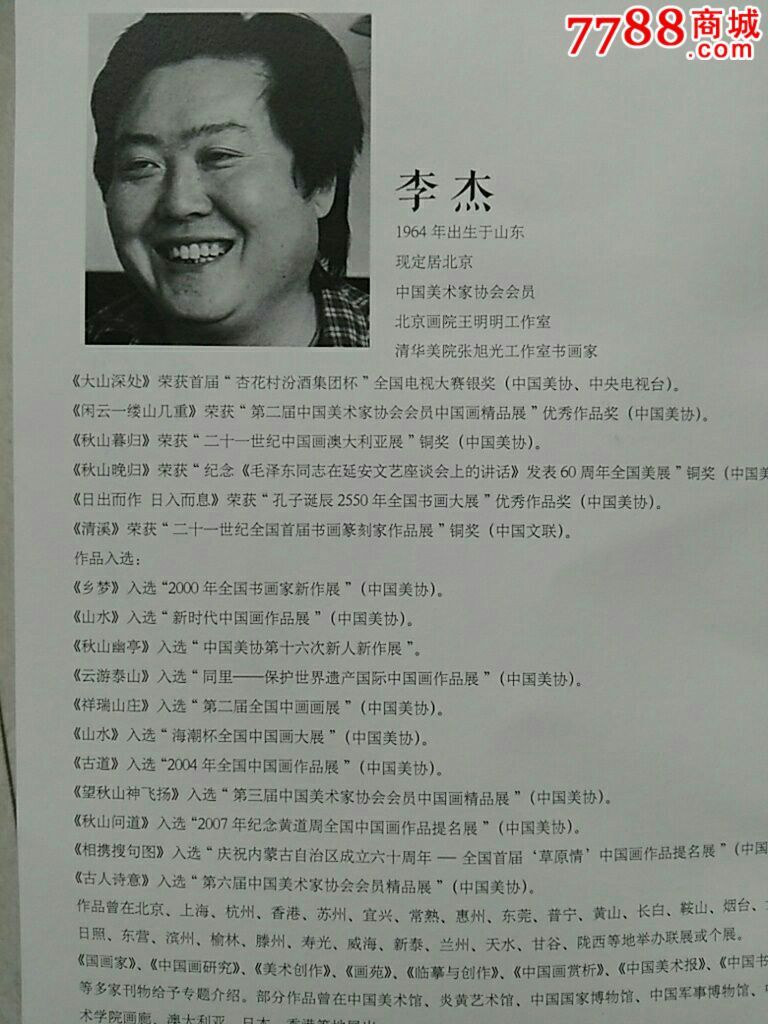 7788商城
.com
李杰
1964 年出生于山东
现定居北京
中国美术家协会会员
北京画院王明明工作室
清华美院张旭光工作室书画家
《大山深处》荣获首届“杏花村汾酒集团杯”全国电视大赛银奖（中国美协、中央电视台）。
《闲云一缕山几重》荣获“第二届中国美术家协会会员中国画精品展”优秀作品奖（中国美协）。
《秋山暮归》荣获“二十一世纪中国画澳大利亚展”铜奖（中国美协）。
《秋山晚归》荣获“纪念《毛泽东同志在延安文艺座谈会上的讲话》发表 60 周年全国美展”铜奖（中国美
《日出而作 日入而息》荣获“孔子诞辰 2550 年全国书画大展”优秀作品奖（中国美协）。
《清溪》荣获“二十一世纪全国首届书画篆刻家作品展”铜奖（中国文联）。
作品入选：
《乡梦》入选“2000 年全国书画家新作展”（中国美协）。
《山水》入选“新时代中国画作品展”（中国美协）。
《秋山幽亭》入选“中国美协第十六次新人新作展”。
《云游泰山》入选“同里——保护世界遗产国际中国画作品展”（中国美协）。
《祥瑞山庄》入选“第二届全国中画画展”（中国美协）。
《山水》入选“海潮杯全国中国画大展”（中国美协）。
《古道》入选“2004 年全国中国画作品展”（中国美协）。
《望秋山神飞扬》入选“第三届中国美术家协会会员中国画精品展”（中国美协）。
《秋山问道》入选“2007 年纪念黄道周全国中国画作品提名展”（中国美协）。
《相携搜句图》入选“庆祝内蒙古自治区成立六十周年 — 全国首届‘草原情’中国画作品提名展”（中国
《古人诗意》入选“第六届中国美术家协会会员精品展”（中国美协）。
作品曾在北京、上海、杭州、香港、苏州、宜兴、常熟、惠州、东莞、普宁、黄山、长白、鞍山、烟台、
日照、东营、滨州、榆林、滕州、寿光、威海、新泰、兰州、天水、甘谷、陇西等地举办联展或个展。
《国画家》、《中国画研究》、《美术创作》、《画苑》、《临摹与创作》、《中国画赏析》、《中国美术报》、《中国书
等多家刊物给予专题介绍。部分作品曾在中国美术馆、炎黄艺术馆、中国国家博物馆、中国军事博物馆、
术学院画廊、澳大利亚、日本、香港等地展出